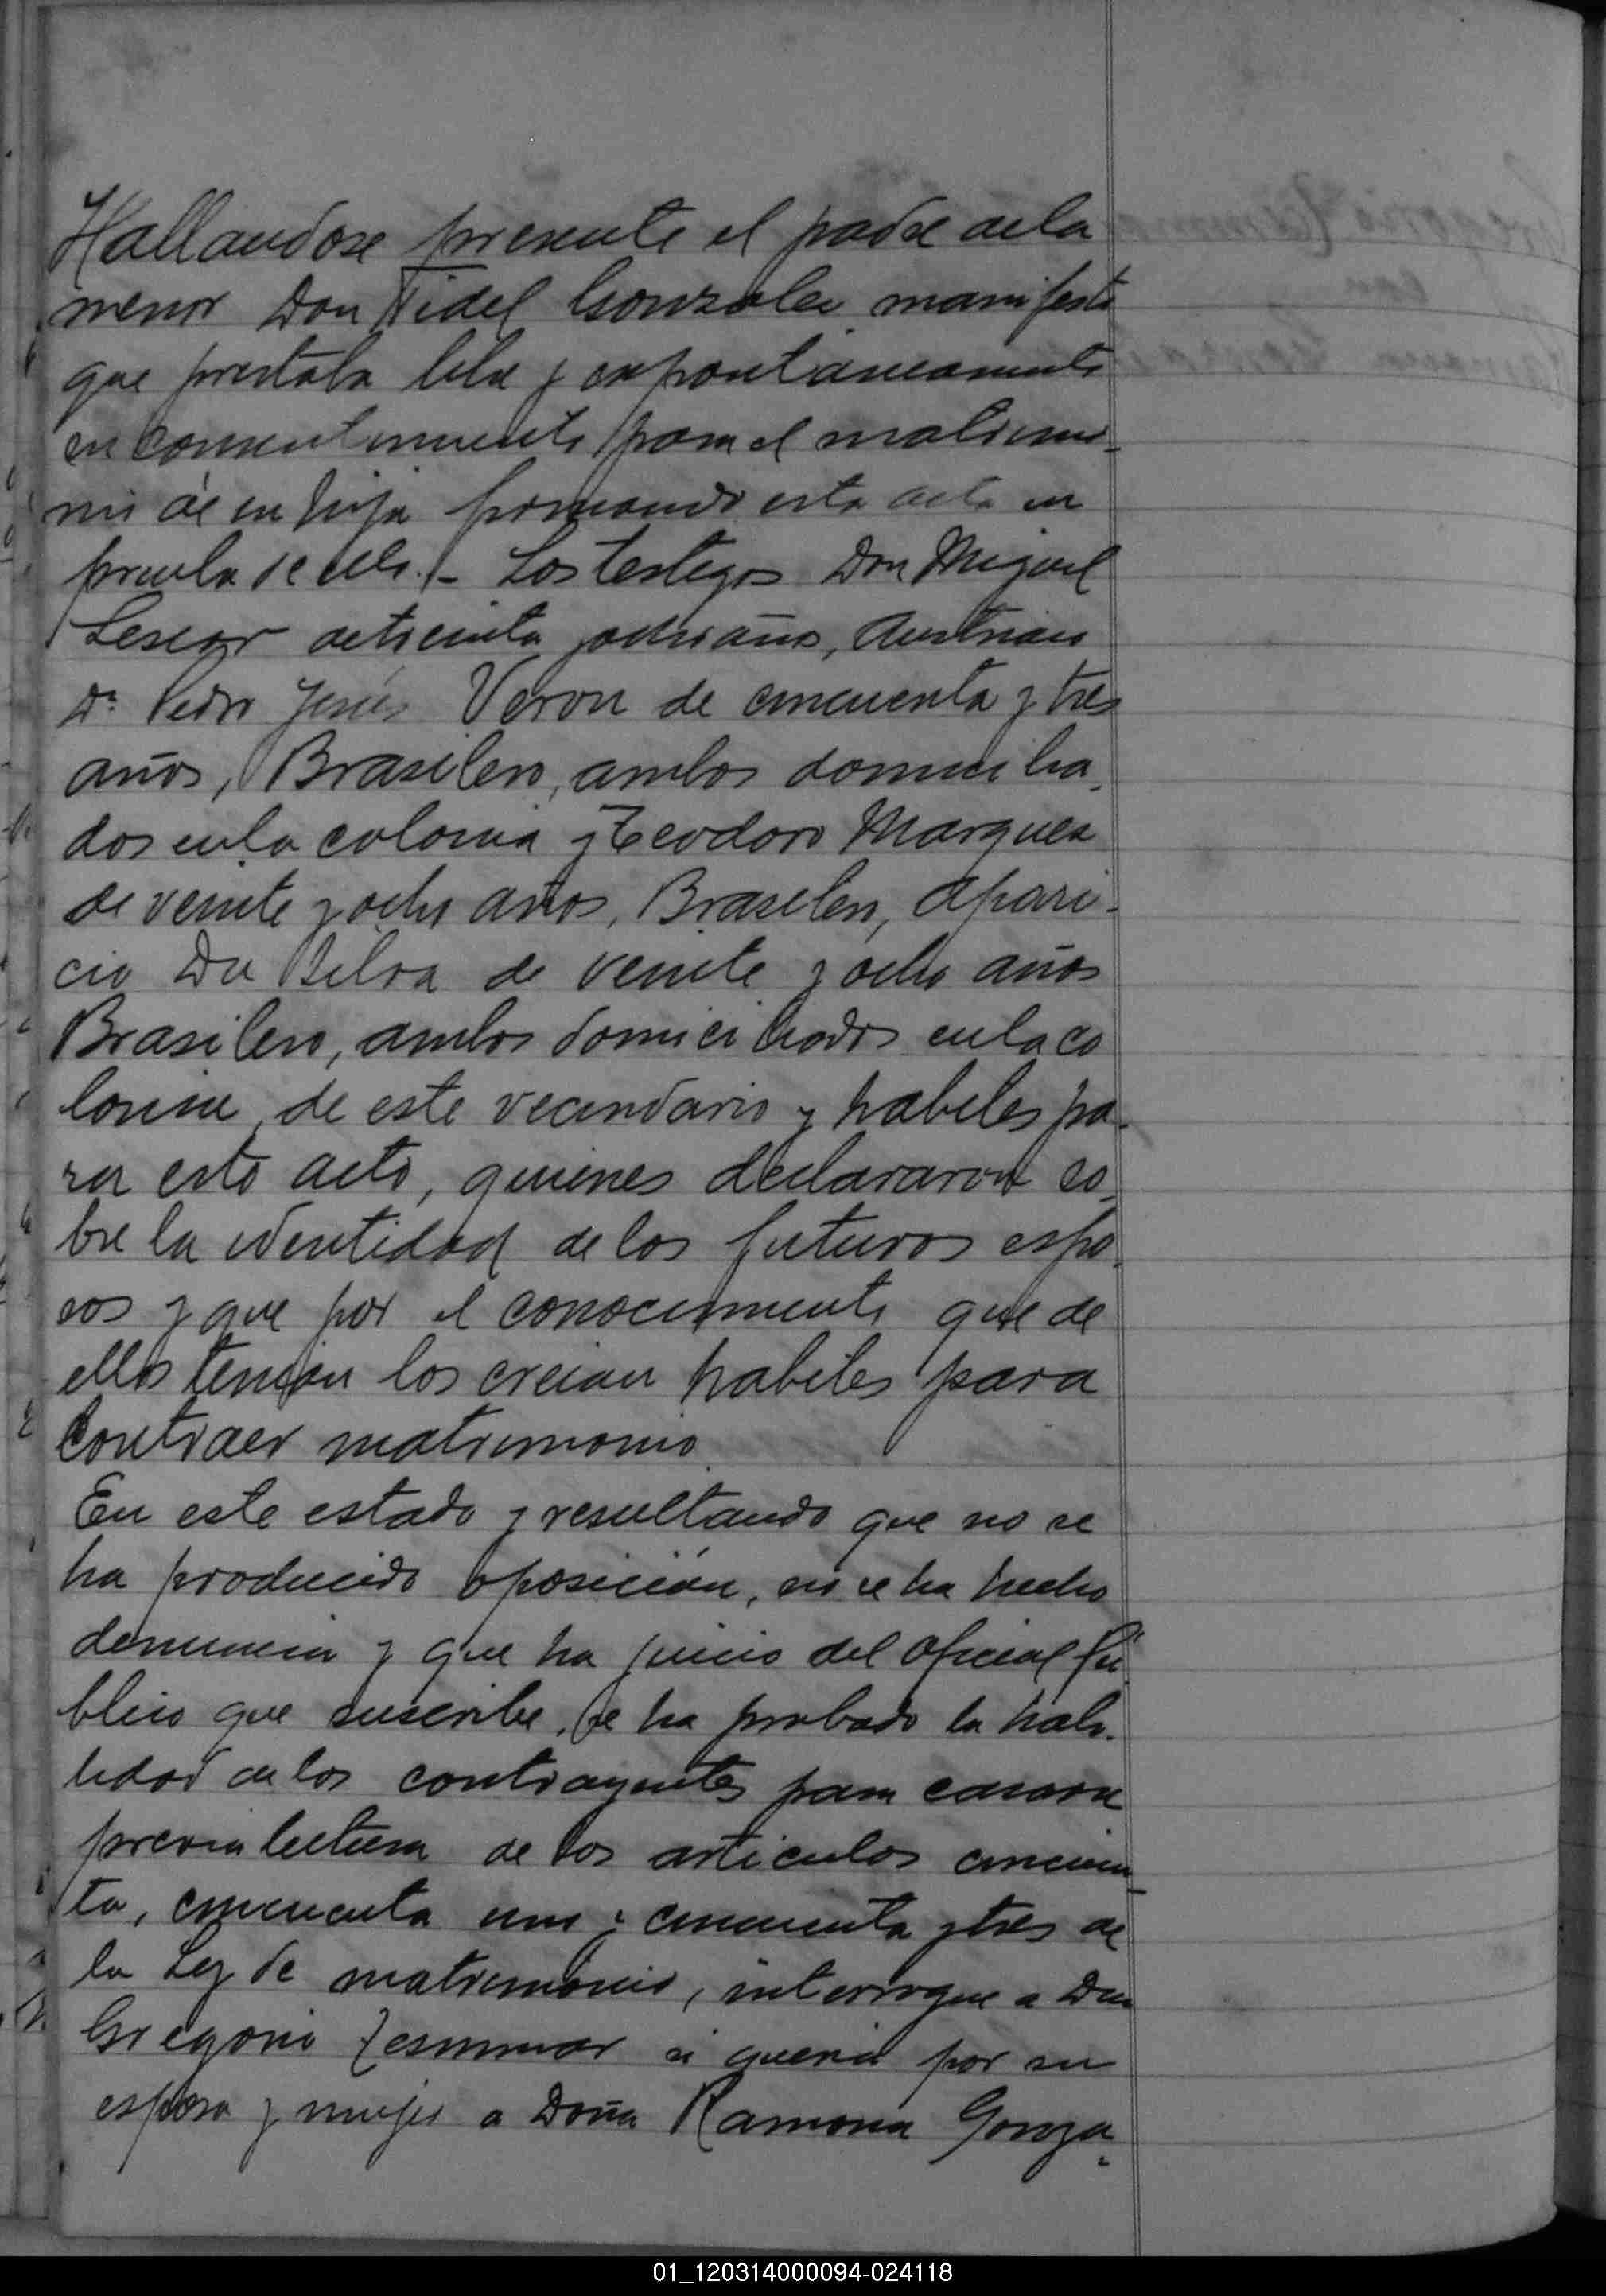 Hallandose presente el padre dela
menor Don Fidel Gonzalez manifesto
que prestaba libre y expontaneamente
su consentimiento para el matrimo-
nio de su hija firmando esta acta en
prueba de ello.- Los testigos Don Miguel
de treinta y ocho años, Austriaco
Dn Pedro Jesús Veron de cincuenta y tres
años, Brasilero, ambos domicilia-
dos en la colonia y Teodoro Marquez
de veinte y ocho años, Brasilero, Apari-
cio Da Silva de veinte y ocho años
Brasilero, ambos domiciliados en la co
lonia, de este vecindario y habiles pa-
ra este acto, quienes declararon so-
bre la identidad de los futuros espo-
sos y que por el conocimiento que de
ellos tenian los creian habiles para
contraer matrimonio
En este estado y resultando que no se
ha producido oposición, no se ha hecho
denuncia y que ha juicio del oficial Pú-
blico que suscribe, se ha probado la habi-
lidad de los contrayentes para casarse
previa lectura de los articulos cincuen-
ta, cincuenta uno y cincuenta y tres de
la Ley de matrimonio, interrogue a Don
Gregorio si queria por su
esposa y mujer a Doña Ramona Gonza-
01_120314000094-024118